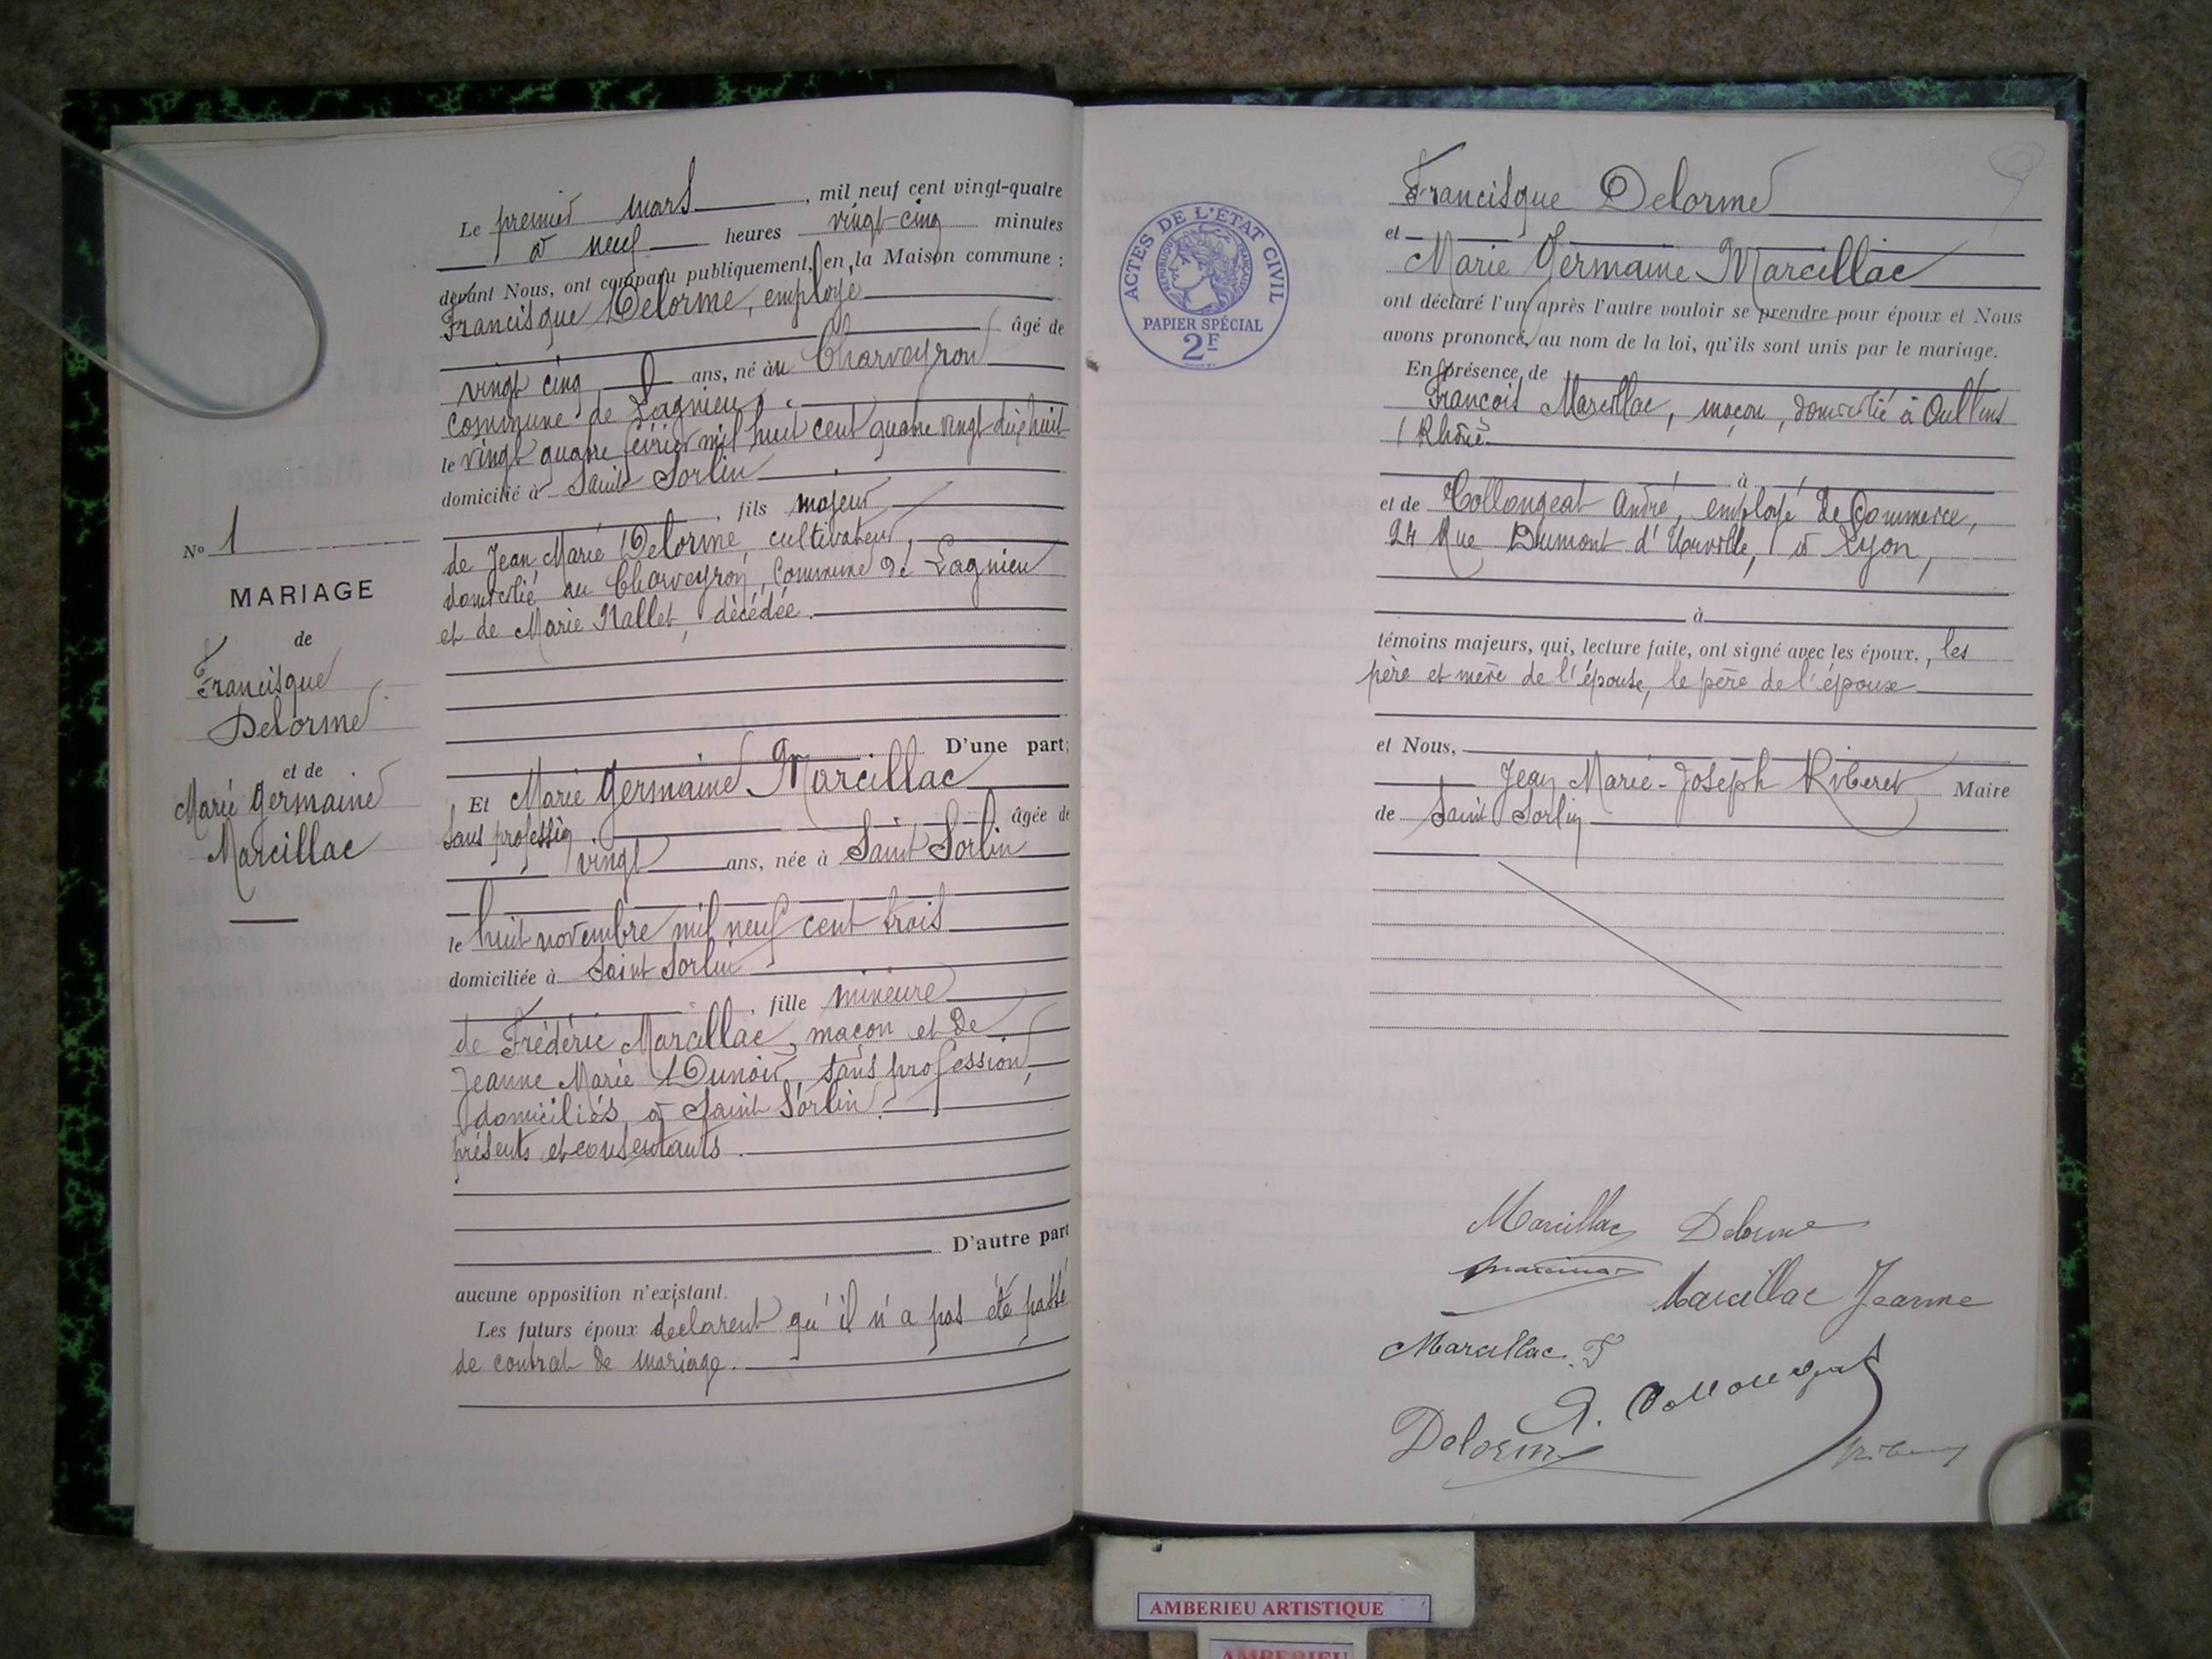 Le premier mars, mil neuf cent vingt-quatre
à neuf heures vingt-cinq minutes
devant Nous, ont comparu publiquement, en la Maison commune :
Francisque Delorme, employé
âgé de
vingt cinq ans, né au Charveyron
commune de Lagnieu
le vingt quatre février mil huit cent quatre vingt dix huit
domicilié à Saint Sorlin
, fils majeur
de Jean Marie Delorme, cultivateur,
domicilié au Charveyron, commune de Lagnieu
et de Marie Nallet, décédée.
D'une part;
Et Marie Germaine Marcillac
sans professio âgée de
vingt ans, née à Saint Sorlin
le huit novembre mil neuf cent trois
domiciliée à Saint Sorlin
, fille mineure
de Frédéric Marcillac, maçon et de
Jeanne Marie Dunoir, sans profession,
domiciliés à Saint Sorlin.
présents et consentants.
D'autre part
aucune opposition n'existant.
Les futurs époux déclarent qu'il n'a pas été passé
de contrat de mariage.
No 1
MARIAGE
de
Francisque
Delorme
et de
Marie Germaine
Marcillac
ACTES DE L'ETAT CIVIL
REPUBLIQUE FRANÇAISE
PAPIER SPÉCIAL
2F
Francisque Delorme
et
Marie Germaine Marcillac
ont déclaré l'un après l'autre vouloir se prendre pour époux et Nous
avons prononcé, au nom de la loi, qu'ils sont unis par le mariage.
En présence de
François Marcillac, maçon, domicilié à Oullins
(Rhône
à
et de Collongeat André, employé de Commerce,
24 Rue Dumont d'Urville, à Lyon,
à
témoins majeurs, qui, lecture faite, ont signé avec les époux, les
père et mère de l'épouse, le père de l'époux
et Nous,
Jean Marie-Joseph Riberet Maire
de Saint Sorlin
Marcillac Delorme
Marcillac Jeanne
Marcillac. F
A. Collongeat
Delorme
AMBERIEU ARTISTIQUE
AMBERIEU